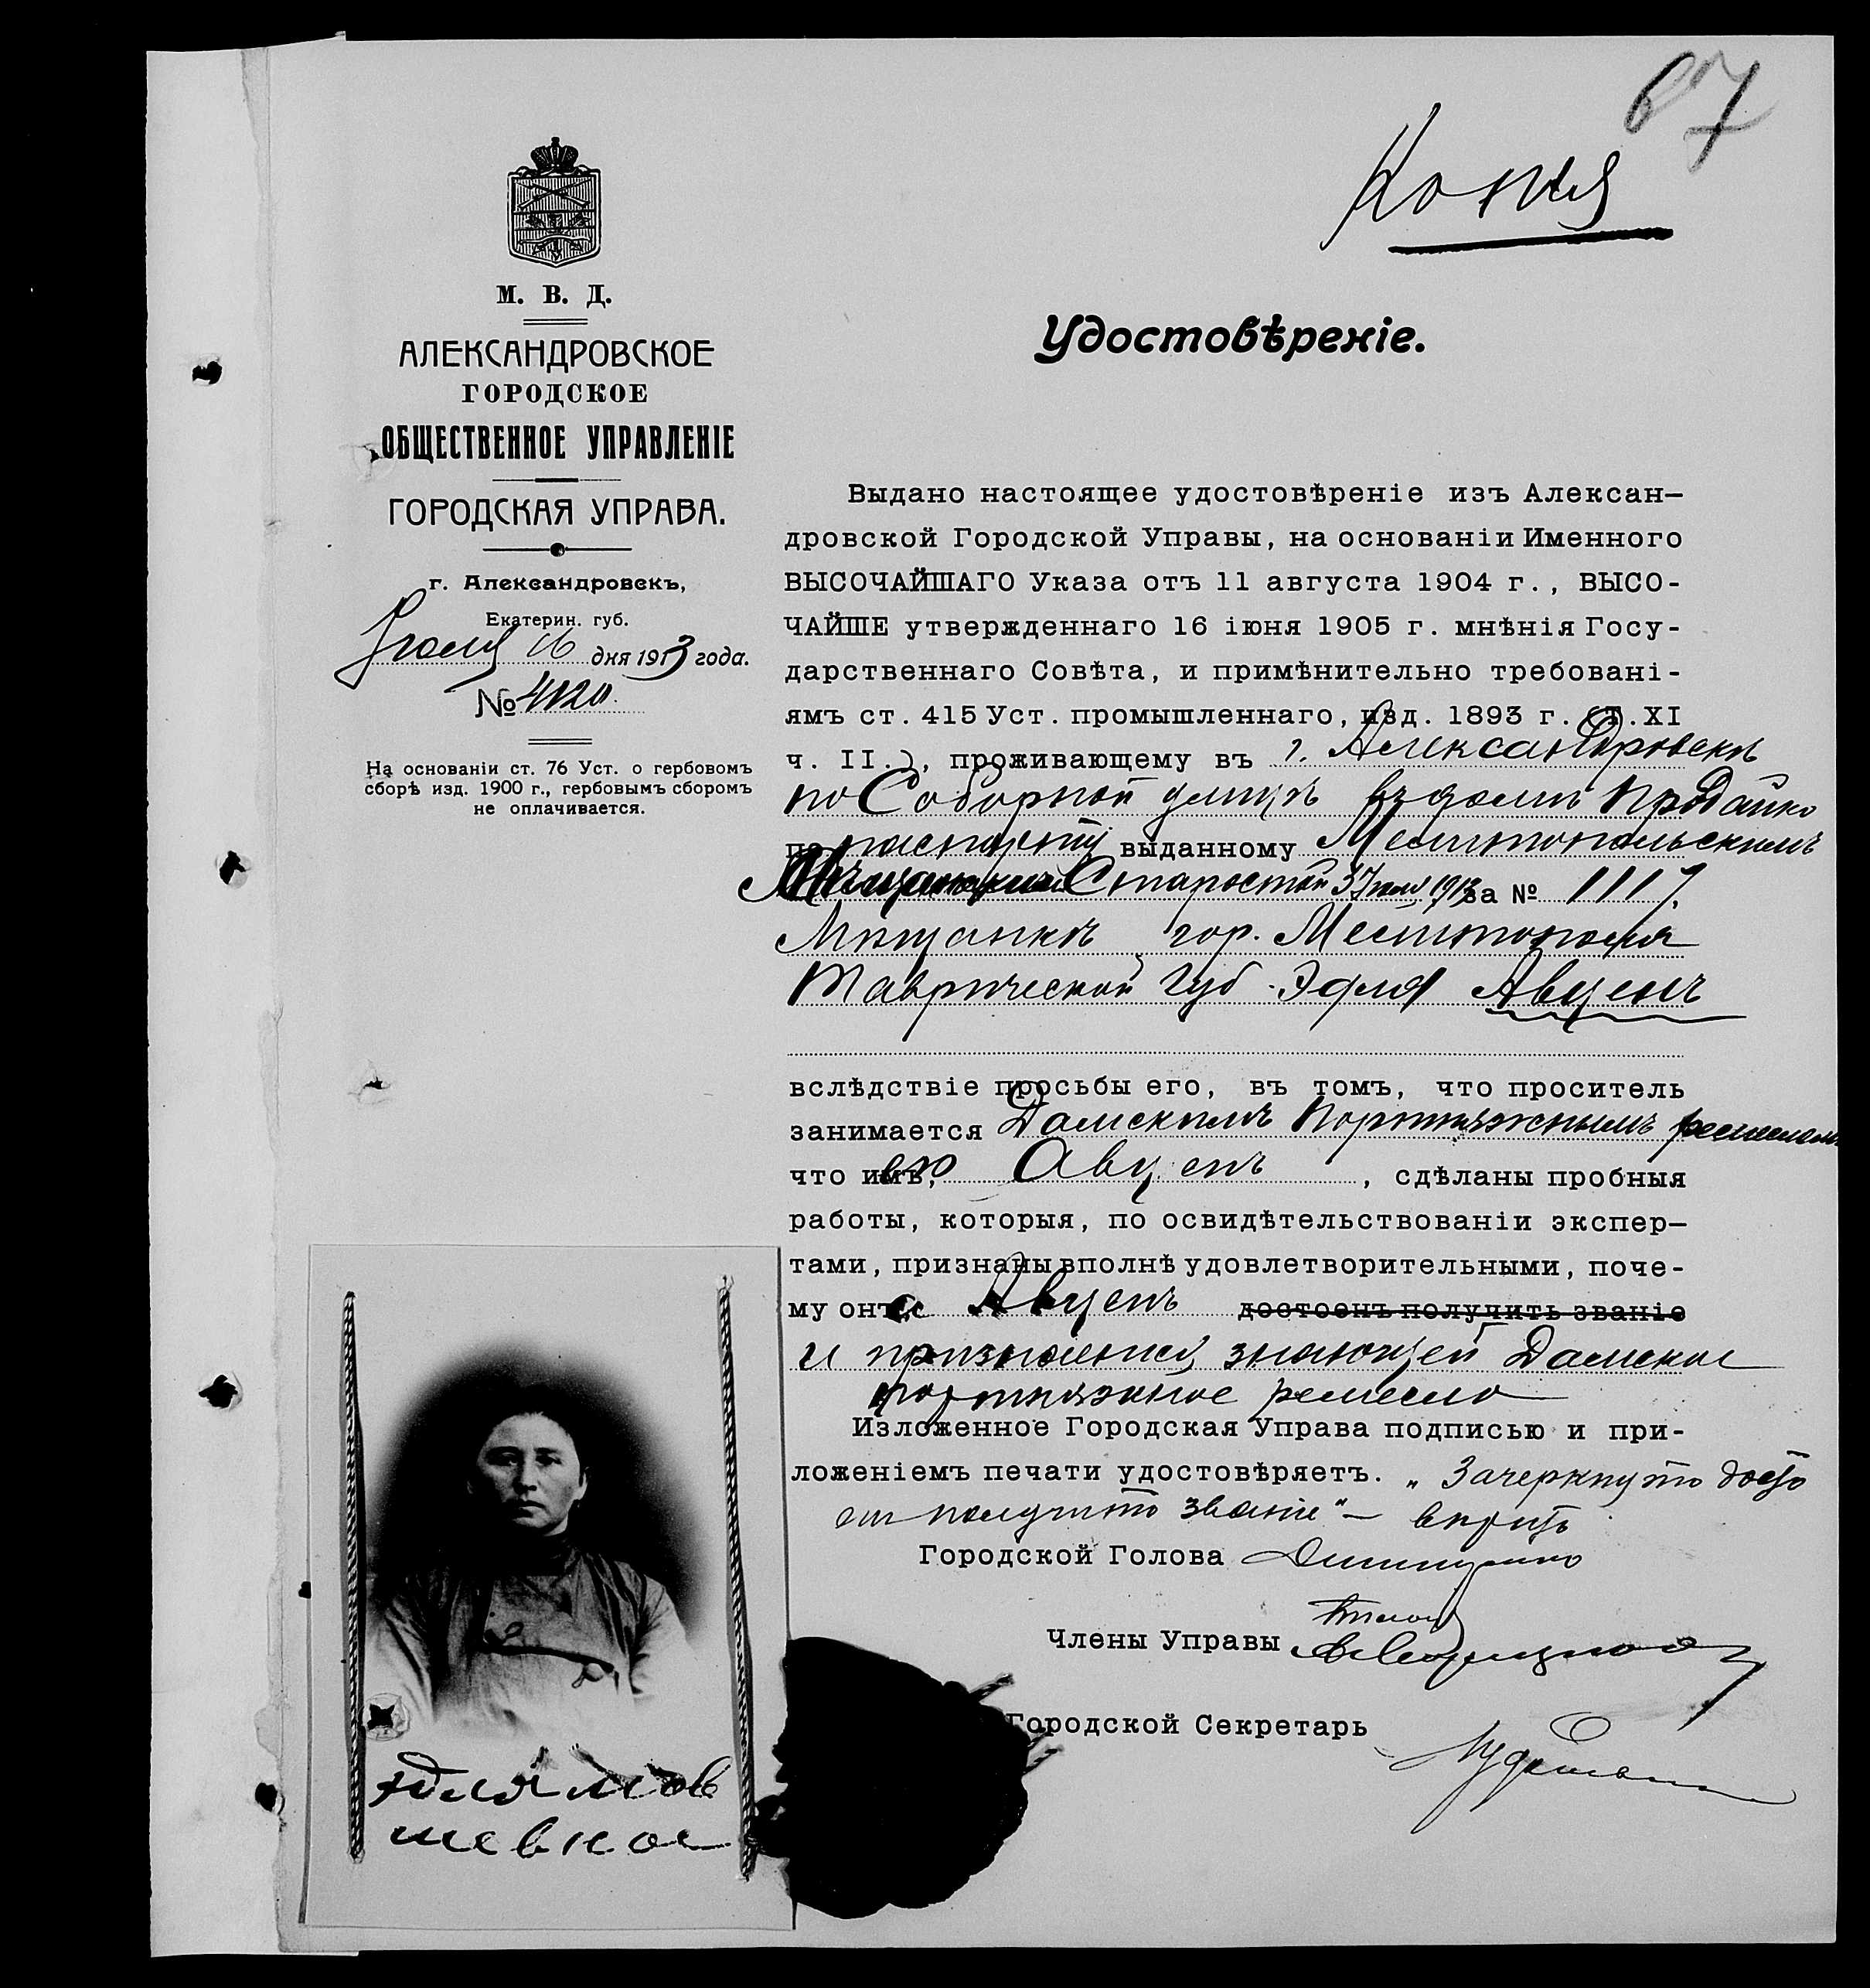 67
Копія
М. В. Д.
АЛЕКСАНДРОВСКОЕ
ГОРОДСКОЕ
ОБЩЕСТВЕННОЕ УПРАВЛЕНІЕ
ГОРОДСКАЯ УПРАВА.
г. Александровскъ,
Екатерин. губ.
16 дня 1913 года.
№ 4120.
На основаніи ст. 76 Уст. о гербовомъ
сборѣ изд. 1900 г., гербовымъ сборомъ
не оплачивается.
Удостовѣреніе.
Выдано настоящее удостовѣреніе изъ Алексан-
дровской Городской Управы, на основаніи Именного
ВЫСОЧАЙШАГО Указа отъ 11 августа 1904 г., ВЫСО-
ЧАЙШЕ утвержденнаго 16 іюня 1905 г. мнѣнія Госу-
дарственнаго Совѣта, и примѣнительно требовані-
ямъ ст. 415 Уст. промышленнаго, изд. 1893 г. (Т. XI
ч. II.), проживающему въ г. Александровскѣ
по Соборной улицѣ въ домѣ
по паспорту выданному Мелитопольскимъ
Мѣщанскимъ Старостой за № 1117.
Мѣщанкѣ гор. Мелитополя
Таврической губ. Эдля Авценъ
вслѣдствіе просьбы его, въ томъ, что проситель
занимается Дамскимъ Портняжнымъ ремесломъ
что имъ, ею Авценъ, сдѣланы пробныя
работы, которыя, по освидѣтельствованіи экспер-
тами, признаны вполнѣ удовлетворительными, поче-
му онъ Авценъ достоенъ получить званіе
и признается знающей Дамское
портняжное ремесло
Изложенное Городская Управа подписью и при-
ложеніемъ печати удостовѣряетъ. „Зачеркнуто
получить званіе" —
Городской Голова
Члены Управы
Городской Секретарь